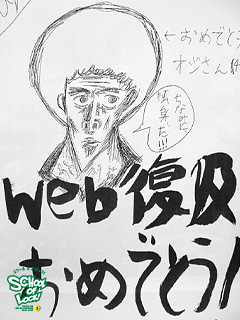 ←おめでとう
オジさん
ちなみに
独身だ!!!
Web復及
おめでとう!
SCHOOL
OF
LOCK!